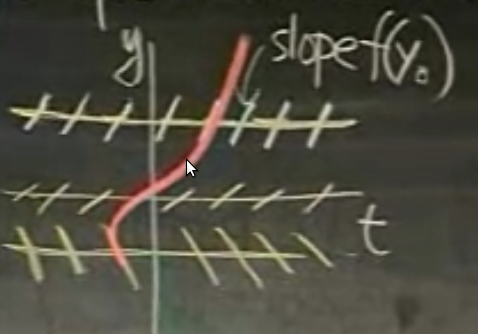 y
slope f(y₀)
t